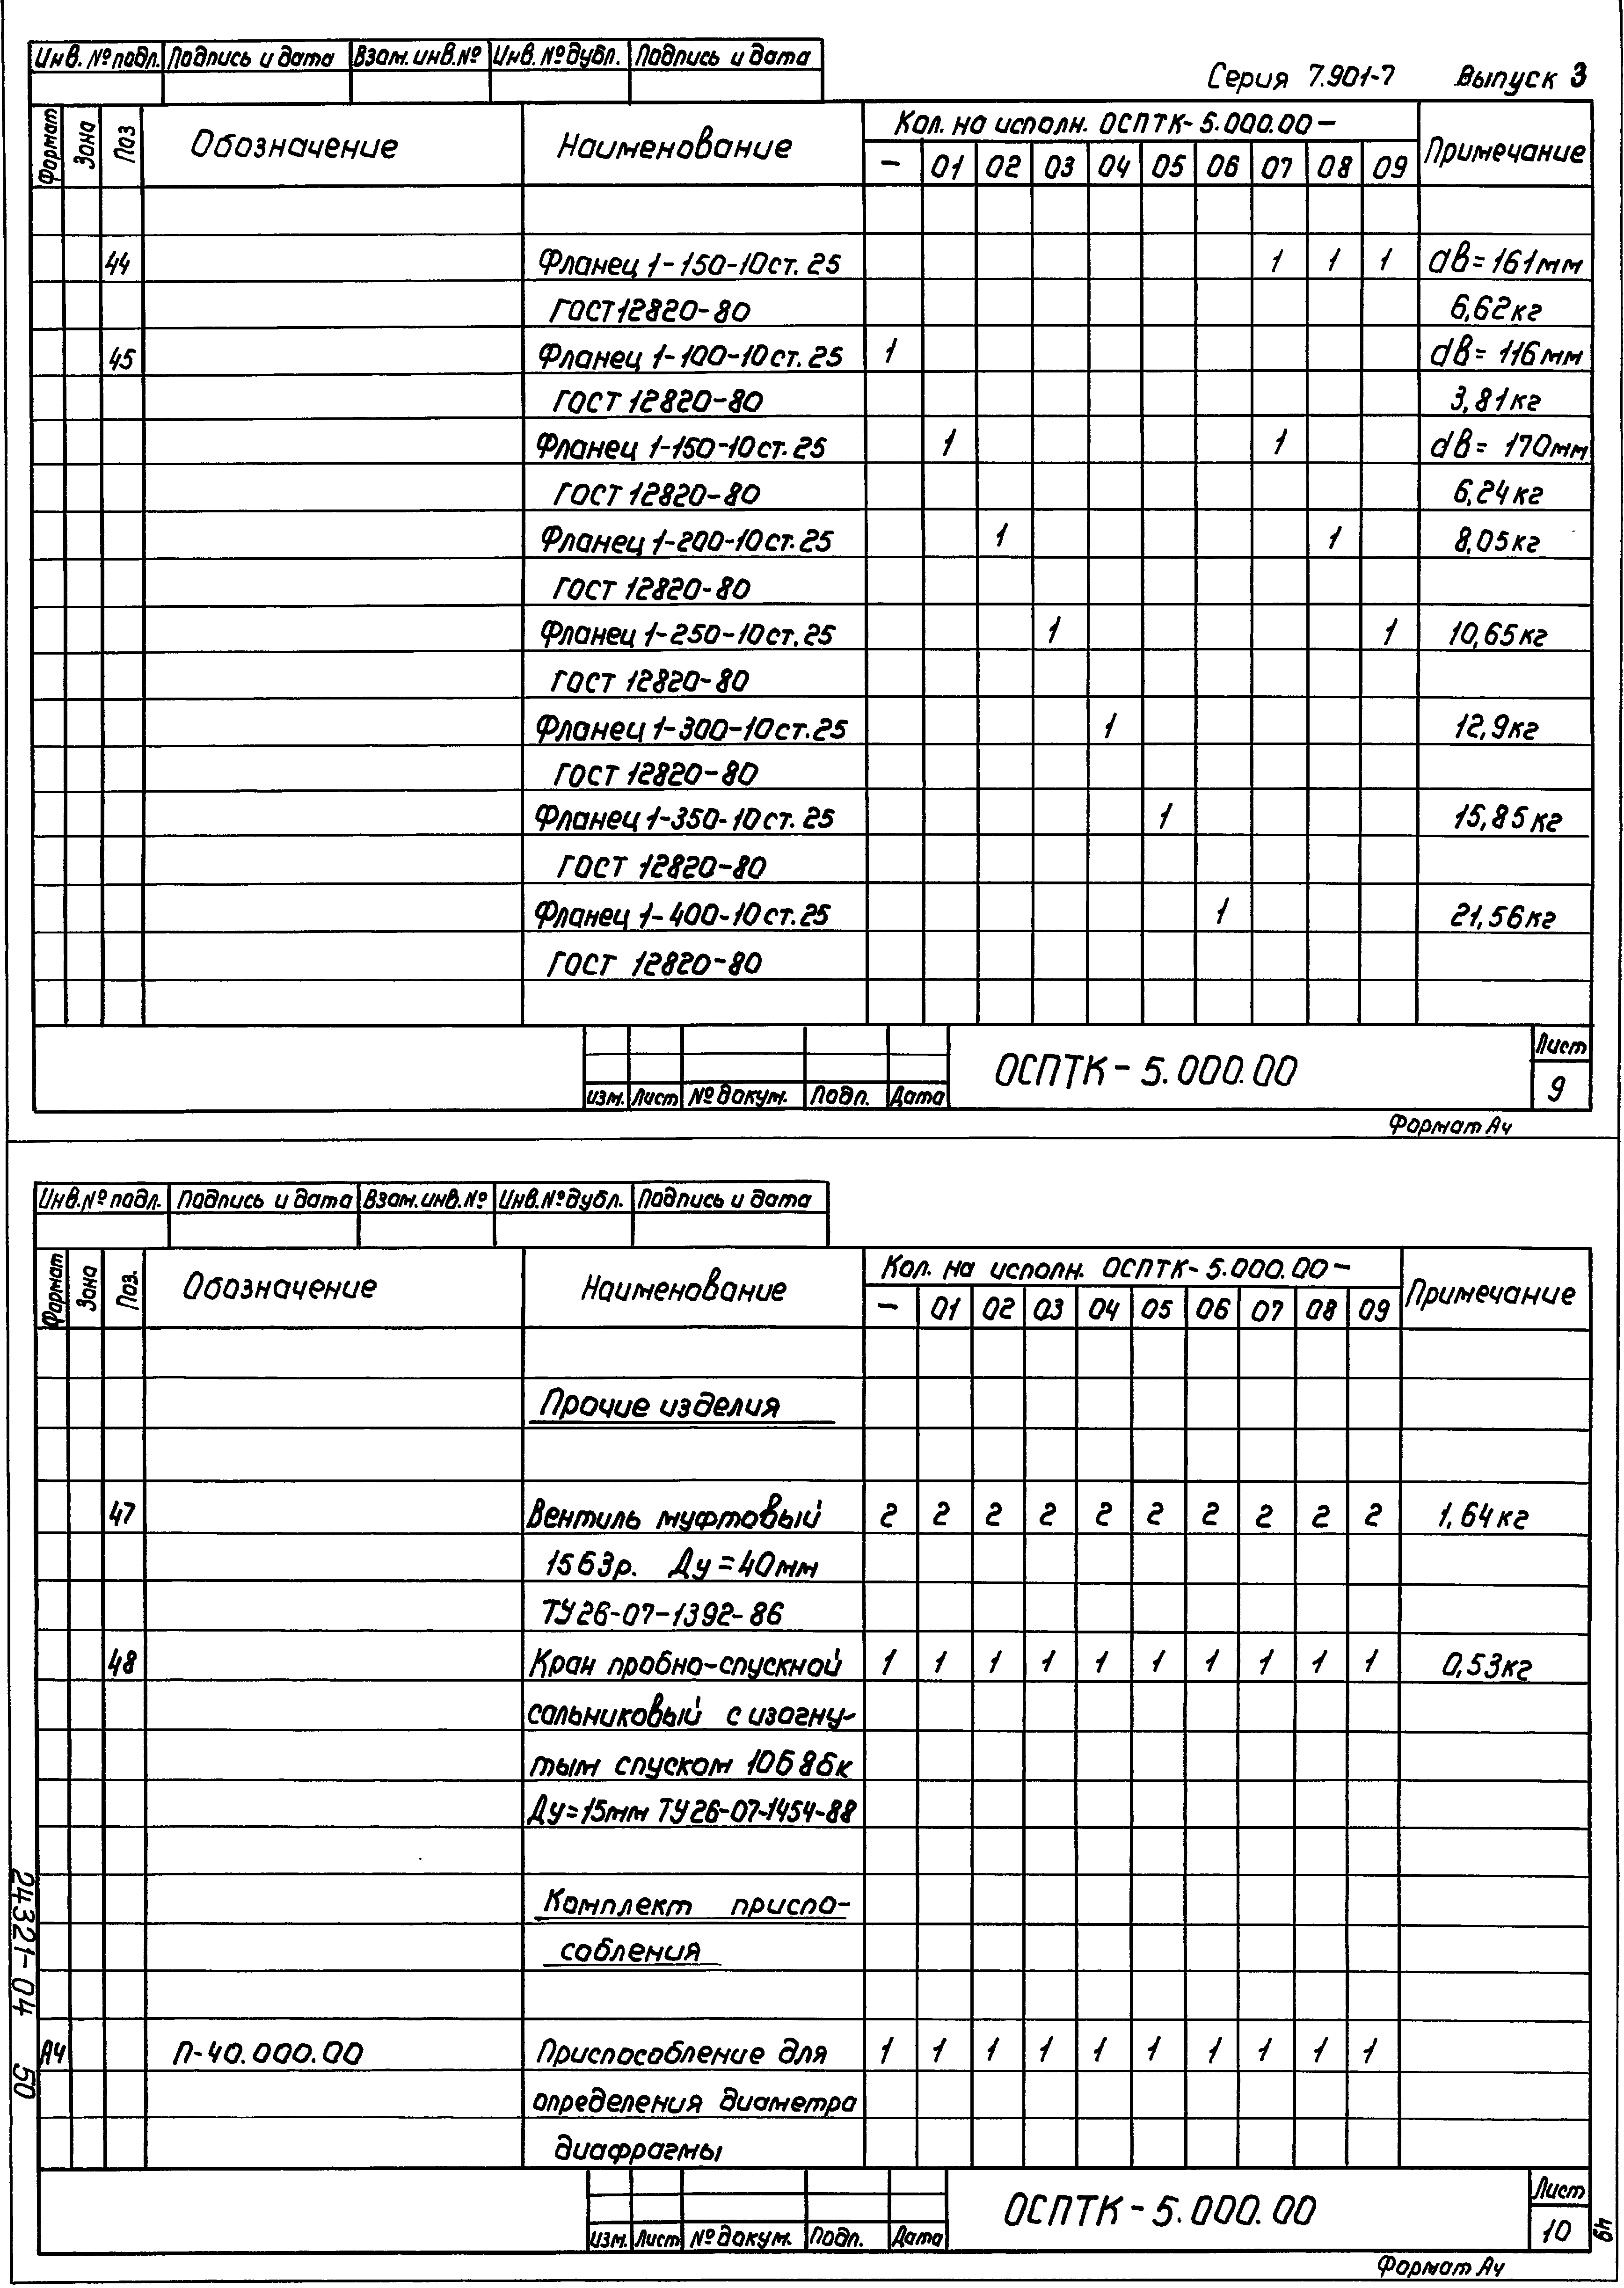 Инв. № подл. Подпись и дата Взам. инв. № Инв. № дубл. Подпись и дата
Серия 7.901-7 Выпуск 3
Формат Зона Поз Обозначение Наименование Кол. на исполн. ОСПТК-5.000.00— Примечание
— 01 02 03 04 05 06 07 08 09
44 Фланец 1-150-10 ст. 25 1 1 1 dв=161мм
ГОСТ 12820-80 6,62кг
45 Фланец 1-100-10 ст. 25 1 dв= 116мм
ГОСТ 12820-80 3,81кг
Фланец 1-150-10 ст. 25 1 1 dв= 170мм
ГОСТ 12820-80 6,24кг
Фланец 1-200-10 ст. 25 1 1 8,05кг
ГОСТ 12820-80
Фланец 1-250-10 ст. 25 1 1 10,65кг
ГОСТ 12820-80
Фланец 1-300-10 ст. 25 1 12,9кг
ГОСТ 12820-80
Фланец 1-350-10 ст. 25 1 15,85кг
ГОСТ 12820-80
Фланец 1-400-10 ст. 25 1 21,56кг
ГОСТ 12820-80
Изм. Лист № докум. Подп. Дата ОСПТК-5.000.00 Лист
9
Формат А4
Инв. № подл. Подпись и дата Взам. инв. № Инв. № дубл. Подпись и дата
Формат Зона Поз. Обозначение Наименование Кол. на исполн. ОСПТК-5.000.00— Примечание
— 01 02 03 04 05 06 07 08 09
Прочие изделия
47 Вентиль муфтовый 2 2 2 2 2 2 2 2 2 2 1,64кг
15б3р. Ду=40мм
ТУ26-07-1392-86
48 Кран пробно-спускной 1 1 1 1 1 1 1 1 1 1 0,53кг
сальниковый с изогну-
тым спуском 10б8бк
Ду=15мм ТУ26-07-1454-88
Комплект приспо-
собления
А4 П-40.000.00 Приспособление для 1 1 1 1 1 1 1 1 1 1
определения диаметра
диафрагмы
Изм. Лист № докум. Подп. Дата ОСПТК-5.000.00 Лист
10
Формат А4
24321-04 50
49